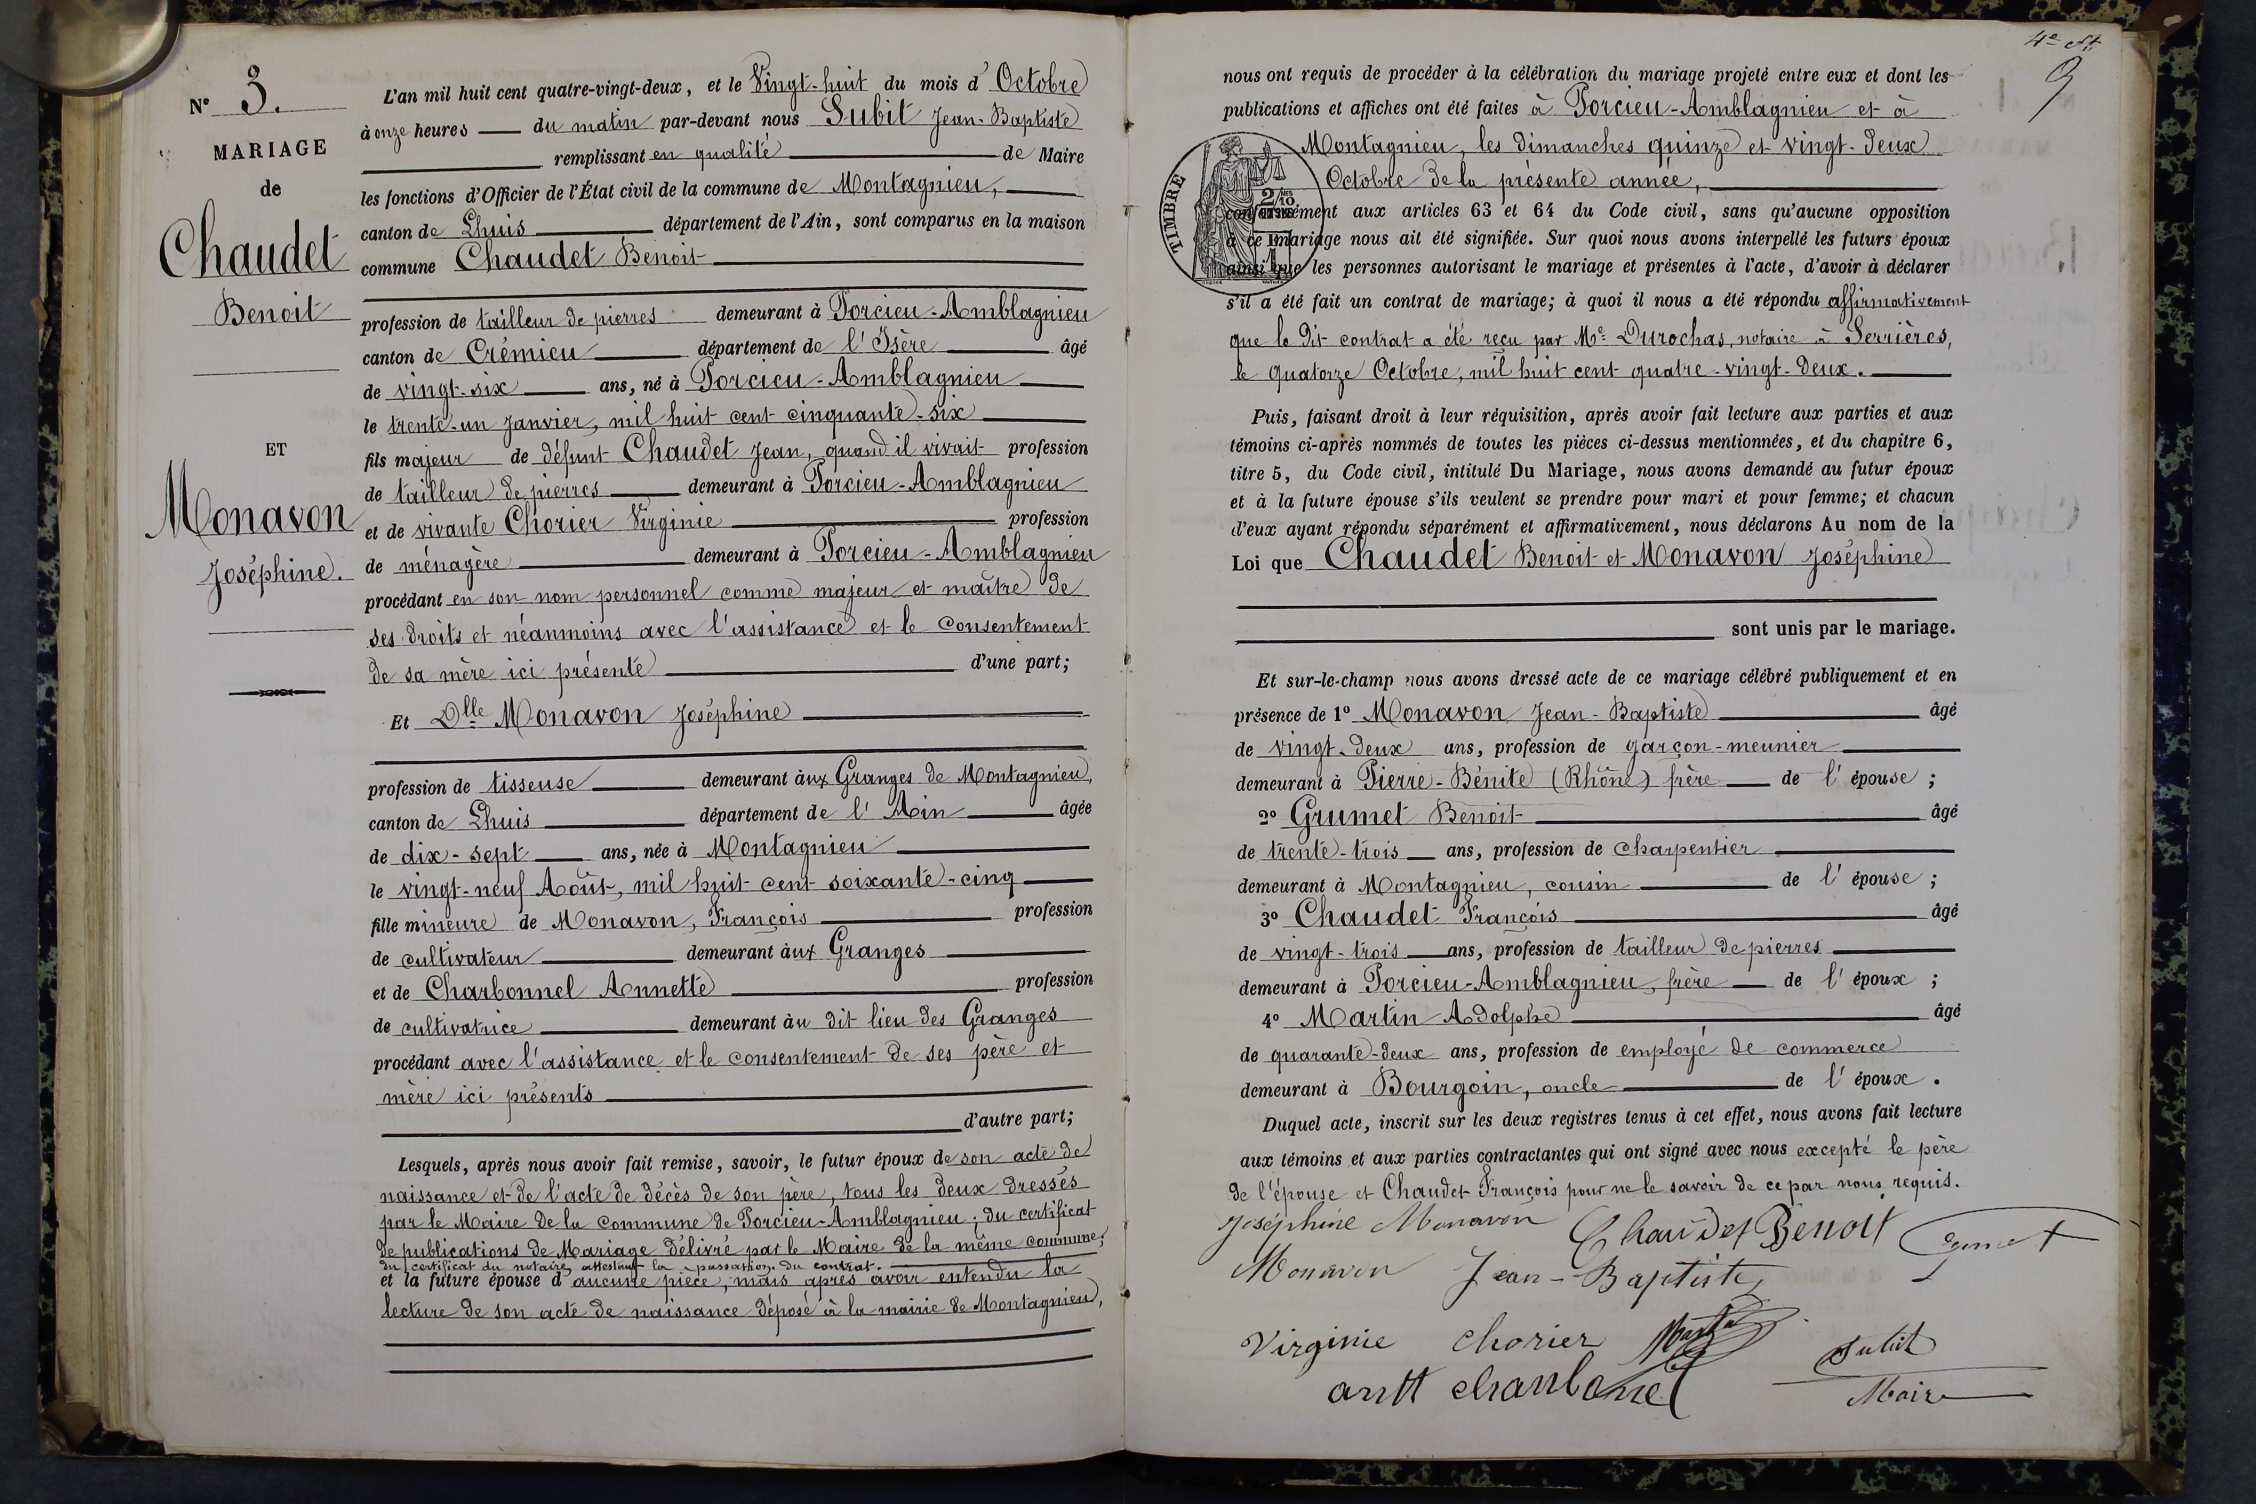 N° 3.
MARIAGE
de
Chaudet
Benoit
ET
Monavon
Joséphine.
L'an mil huit cent quatre-vingt-deux, et le Vingt-huit du mois d'Octobre
à onze heures du matin par-devant nous Subit Jean-Baptiste
remplissant en qualité de Maire
les fonctions d'Officier de l'État civil de la commune de Montagnieu,
canton de Lhuis département de l'Ain, sont comparus en la maison
commune Chaudet Benoit
profession de tailleur de pierres demeurant à Porcieu-Amblagnieu
canton de Crémieu département de l'Isère âgé
de vingt-six ans, né à Porcieu-Amblagnieu
le trente-un Janvier, mil huit cent cinquante-six
fils majeur de défunt Chaudet Jean, quand il vivait profession
de tailleur de pierres demeurant à Porcieu-Amblagnieu
et de vivante Chorier Virginie profession
de ménagère demeurant à Porcieu-Amblagnieu
procédant en son nom personnel comme majeur et maître de
ses droits et néanmoins avec l'assistance et le consentement
de sa mère ici présente d'une part;
Et Dlle Monavon Joséphine
profession de tisseuse demeurant àux Granges de Montagnieu,
canton de Lhuis département de l'Ain âgée
de dix-sept ans, née à Montagnieu
le vingt-neuf Août, mil huit cent soixante-cinq
fille mineure de Monavon, François profession
de cultivateur demeurant àux Granges
et de Charbonnel Annette profession
de cultivatrice demeurant àu dit lieu des Granges
procédant avec l'assistance et le consentement de ses père et
mère ici présents
d'autre part;
Lesquels, après nous avoir fait remise, savoir, le futur époux de son acte de
naissance et de l'acte de décès de son père, tous les deux dressés
par le Maire de la commune de Porcieu-Amblagnieu; du certificat
de publications de Mariage délivré par le Maire de la même commune;
du certificat du notaire, attestant la passation du contrat.
et la future épouse d'aucune pièce, mais après avoir entendu la
lecture de son acte de naissance déposé à la mairie de Montagnieu,
9
nous ont requis de procéder à la célébration du mariage projeté entre eux et dont les
publications et affiches ont été faites à Porcieu-Amblagnieu et à
Montagnieu, les dimanches quinze et vingt-deux
Octobre de la présente année,
TIMBRE
2/10
conformément aux articles 63 et 64 du Code civil, sans qu'aucune opposition
à ce mariage nous ait été signifiée. Sur quoi nous avons interpellé les futurs époux
ainsi que les personnes autorisant le mariage et présentes à l'acte, d'avoir à déclarer
s'il a été fait un contrat de mariage; à quoi il nous a été répondu affirmativement
que le dit contrat a été reçu par Me Durochas, notaire à Serrières,
le quatorze Octobre, mil huit cent quatre-vingt-deux.
Puis, faisant droit à leur réquisition, après avoir fait lecture aux parties et aux
témoins ci-après nommés de toutes les pièces ci-dessus mentionnées, et du chapitre 6,
titre 5, du Code civil, intitulé Du Mariage, nous avons demandé au futur époux
et à la future épouse s'ils veulent se prendre pour mari et pour femme; et chacun
d'eux ayant répondu séparément et affirmativement, nous déclarons Au nom de la
Loi que Chaudet Benoit et Monavon Joséphine
sont unis par le mariage.
Et sur-le-champ nous avons dressé acte de ce mariage célébré publiquement et en
présence de 1° Monavon Jean-Baptiste âgé
de vingt-deux ans, profession de garçon-meunier
demeurant à Pierre-Bénite (Rhône) frère de l'épouse;
2° Grumet Benoit âgé
de trente-trois ans, profession de charpentier
demeurant à Montagnieu, cousin de l'épouse;
3° Chaudet François âgé
de vingt-trois ans, profession de tailleur de pierres
demeurant à Porcieu-Amblagnieu, frère de l'époux;
4° Martin Adolphe âgé
de quarante-deux ans, profession de employé de commerce
demeurant à Bourgoin, oncle de l'époux.
Duquel acte, inscrit sur les deux registres tenus à cet effet, nous avons fait lecture
aux témoins et aux parties contractantes qui ont signé avec nous excepté le père
de l'épouse et Chaudet François pour ne le savoir de ce par nous requis.
Joséphine Monavon Chaudet Benoit
Monavon Jean-Baptiste
Virginie chorier Subit
Maire